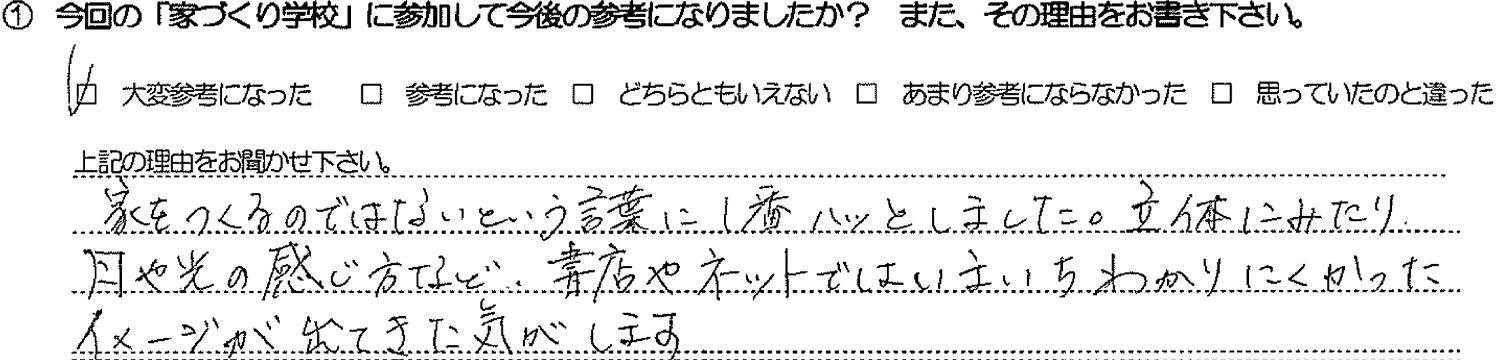 ① 今回の「家づくり学校」に参加して今後の参考になりましたか？ また、その理由をお書き下さい。
☑ 大変参考になった □ 参考になった □ どちらともいえない □ あまり参考にならなかった □ 思っていたのと違った
上記の理由をお聞かせ下さい。
家をつくるのではないという言葉に1番ハッとしました。立体にみたり
日や光の感じ方など、書店やネットではいまいちわかりにくかった
イメージが出てきた気がします